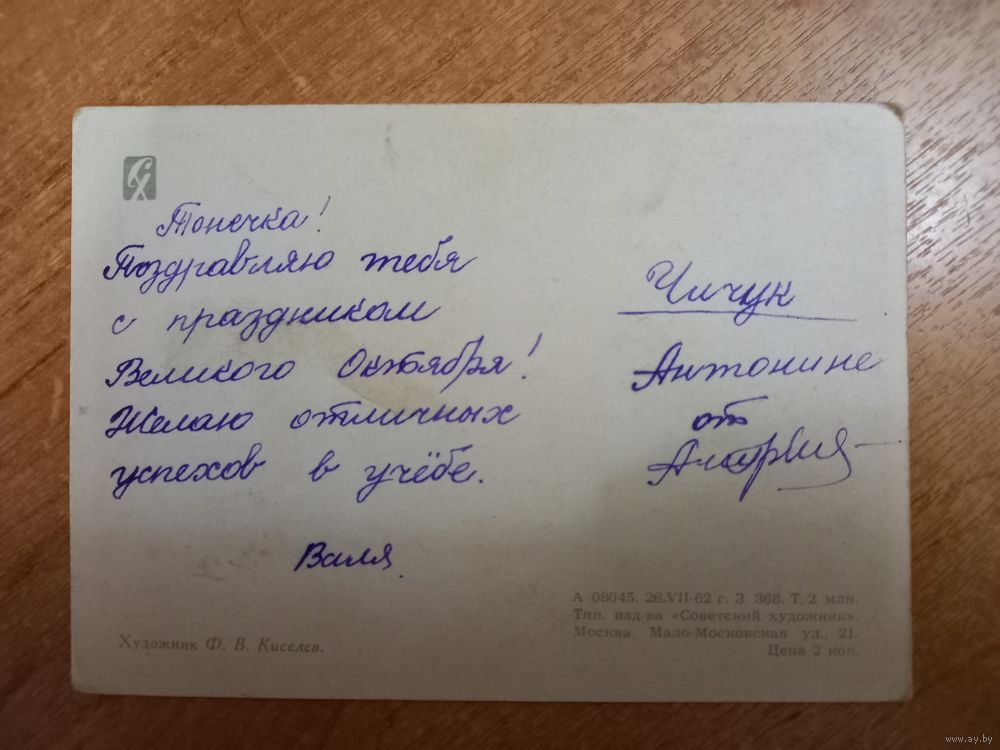 СХ
Тонечка!
Поздравляю тебя
с праздником
Великого Октября!
Желаю отличных
успехов в учёбе.
Валя.
Чичук
Антонине
от
Художник Ф. В. Киселев.
А 08045. 26.VII-62 г. З. 368. Т. 2 млн.
Тип. изд-ва «Советский художник».
Москва, Мало-Московская ул., 21.
Цена 2 коп.
www.ay.by